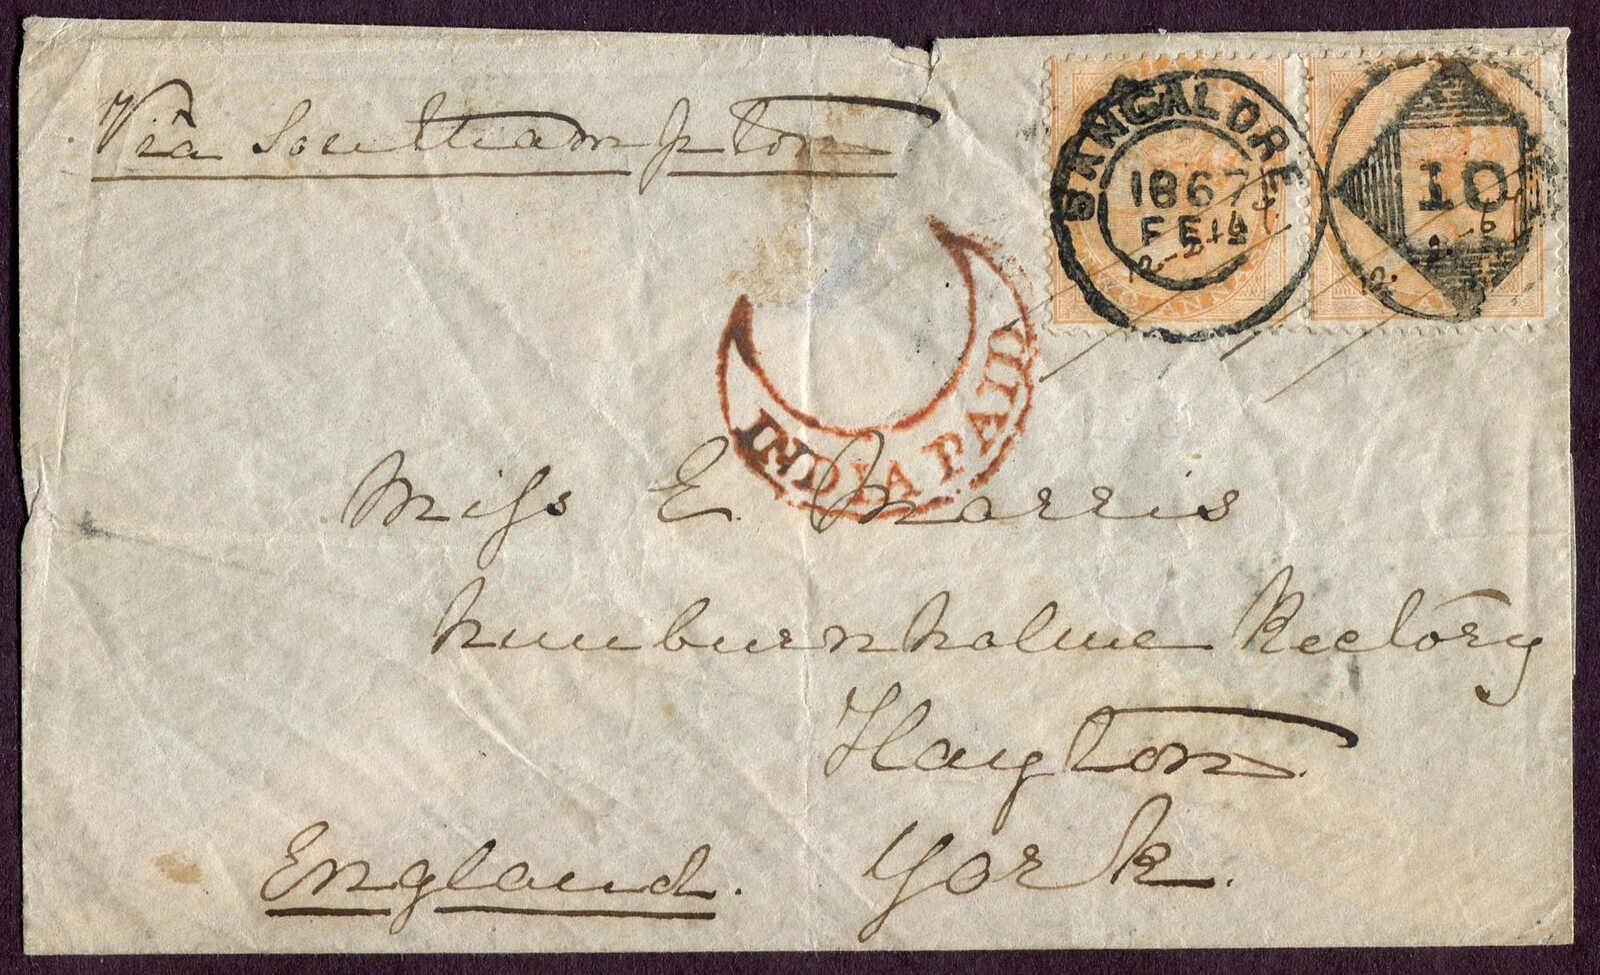 Via Southampton
BANGALORE
1867
FE 14
10
INDIA PAID
Miss E. Morris
Nunburnholme Rectory
Hayton
York.
England.